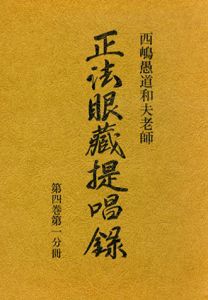 西嶋愚道和夫老師
正法眼藏提唱録
第四巻第一分冊